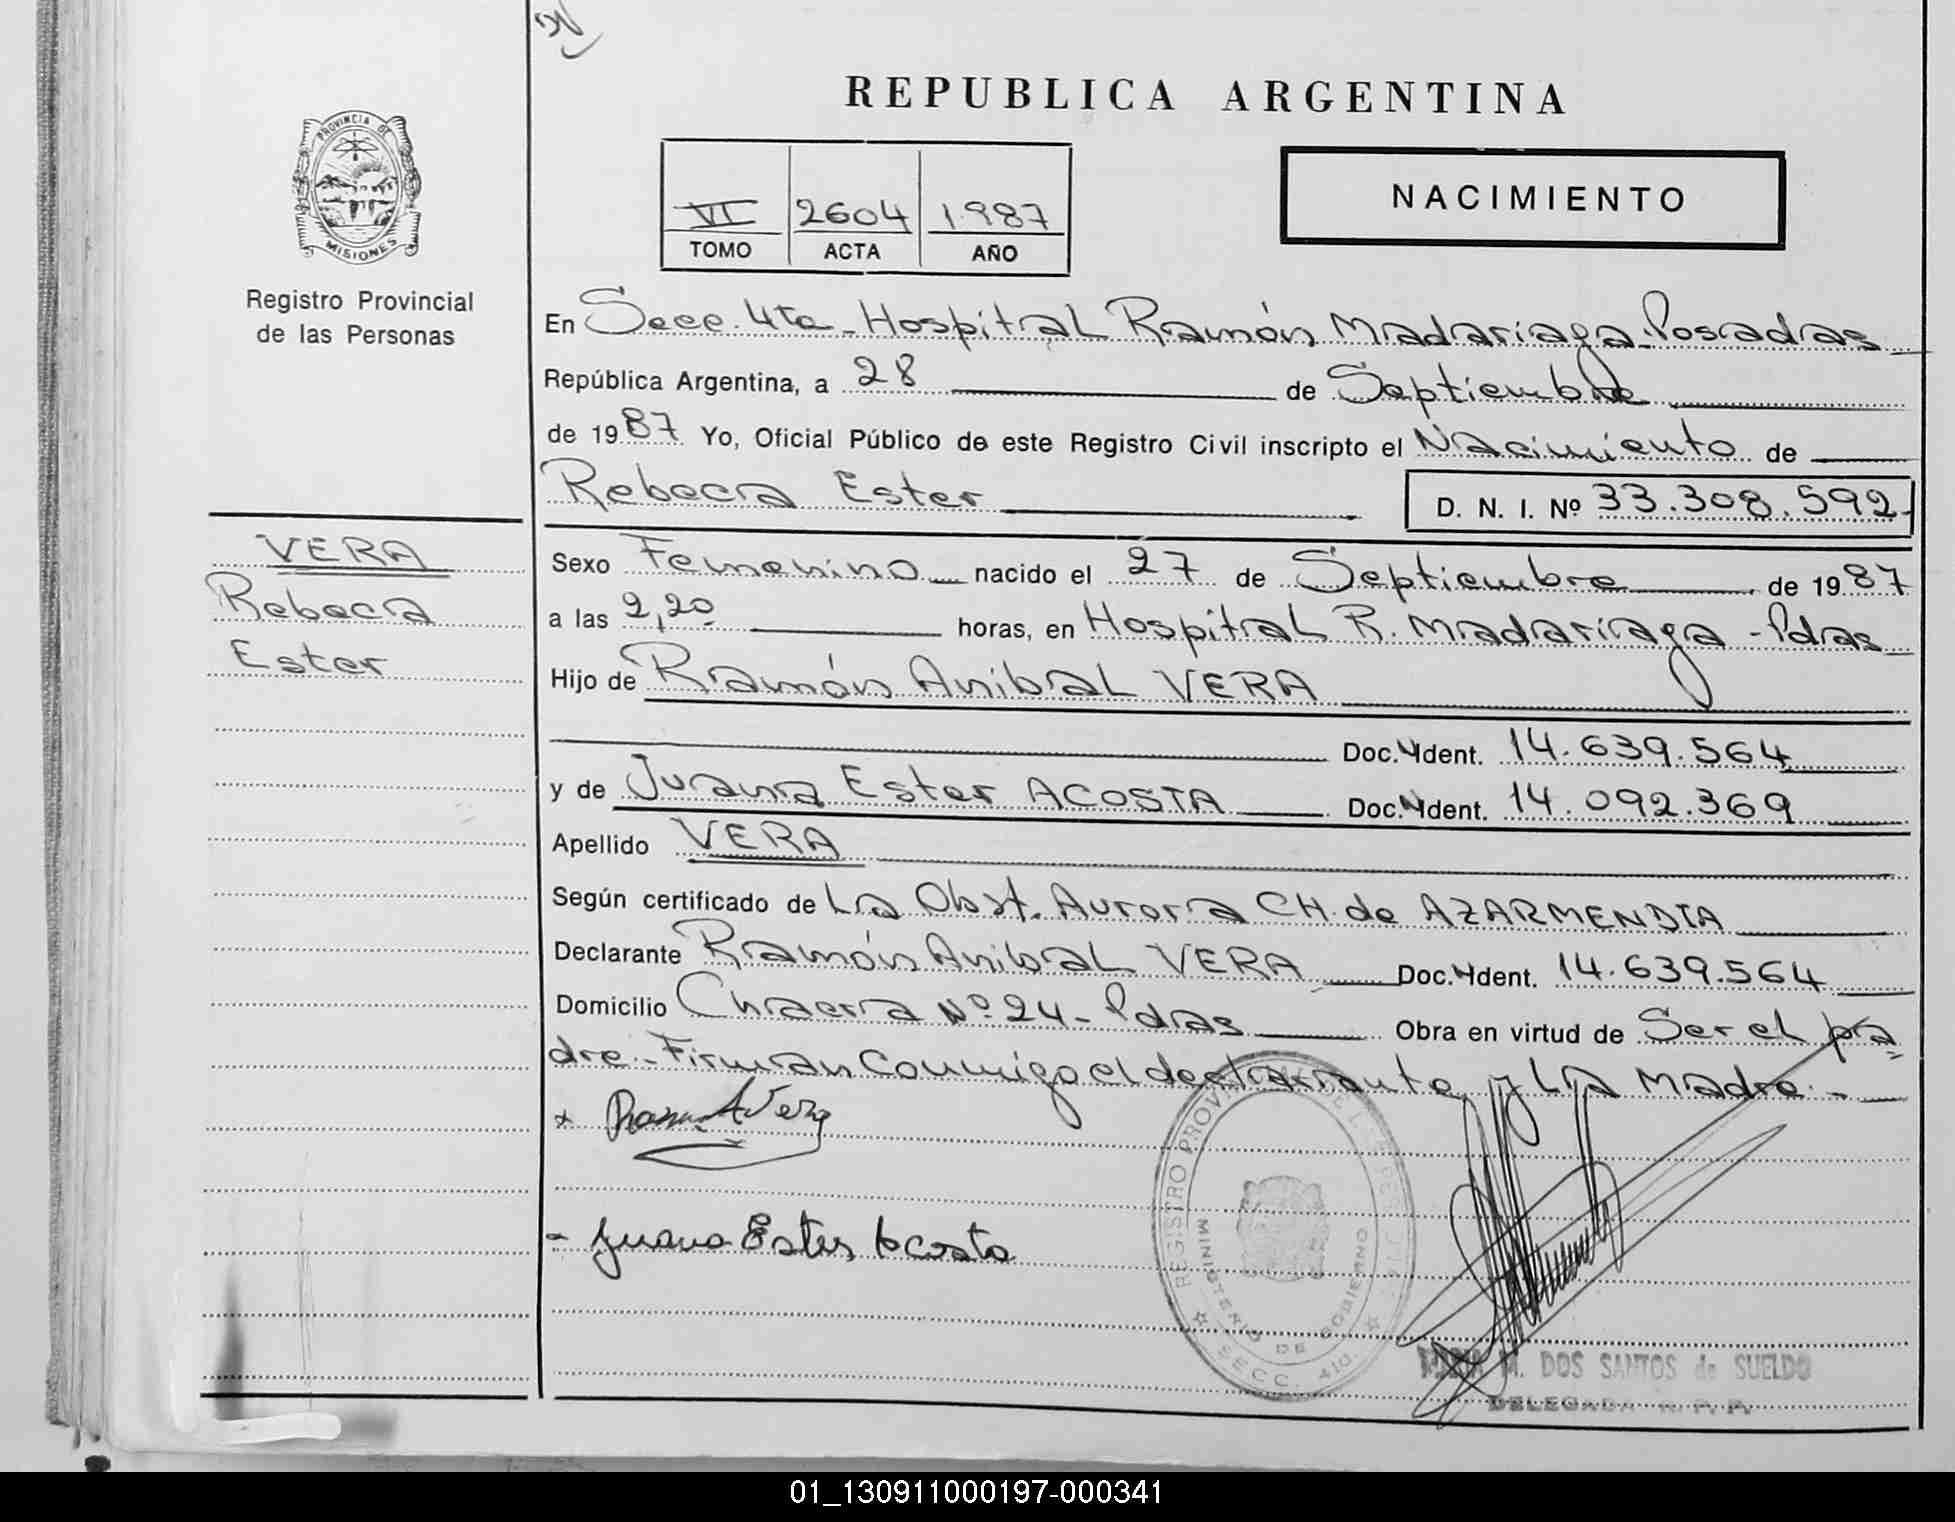 REPUBLICA ARGENTINA
PROVINCIA DE
MISIONES
Registro Provincial
de las Personas
VI 2604 1987
TOMO ACTA AÑO
NACIMIENTO
En Secc. 4ta - Hospital Ramón Madariaga - Posadas
República Argentina, a 28 de Septiembre
de 1987 Yo, Oficial Público de este Registro Civil inscripto el Nacimiento de
Rebeca Ester D. N. I. Nº 33.308.592
VERA
Rebeca
Ester
Sexo Femenino nacido el 27 de Septiembre de 1987
a las 2,20 horas, en Hospital R. Madariaga - Pdas
Hijo de Ramón Anibal VERA
Doc. Ident. 14.639.564
y de Juana Ester ACOSTA Doc. Ident. 14.092.369
Apellido VERA
Según certificado de La Obst. Aurora CH. de AZARMENDIA
Declarante Ramón Anibal VERA Doc. Ident. 14.639.564
Domicilio Chacra Nº 24 - Pdas Obra en virtud de Ser el pa
dre.- Firman Conmigo el declarante y La Madre.-
x Ramon A Vera
- Juana Ester Acosta
REGISTRO PROVINCIAL DE LAS PERSONAS
MINISTERIO DE GOBIERNO
SECC. 4ta.
M. DOS SANTOS de SUELDO
DELEGADA R. P. P.
01_130911000197-000341